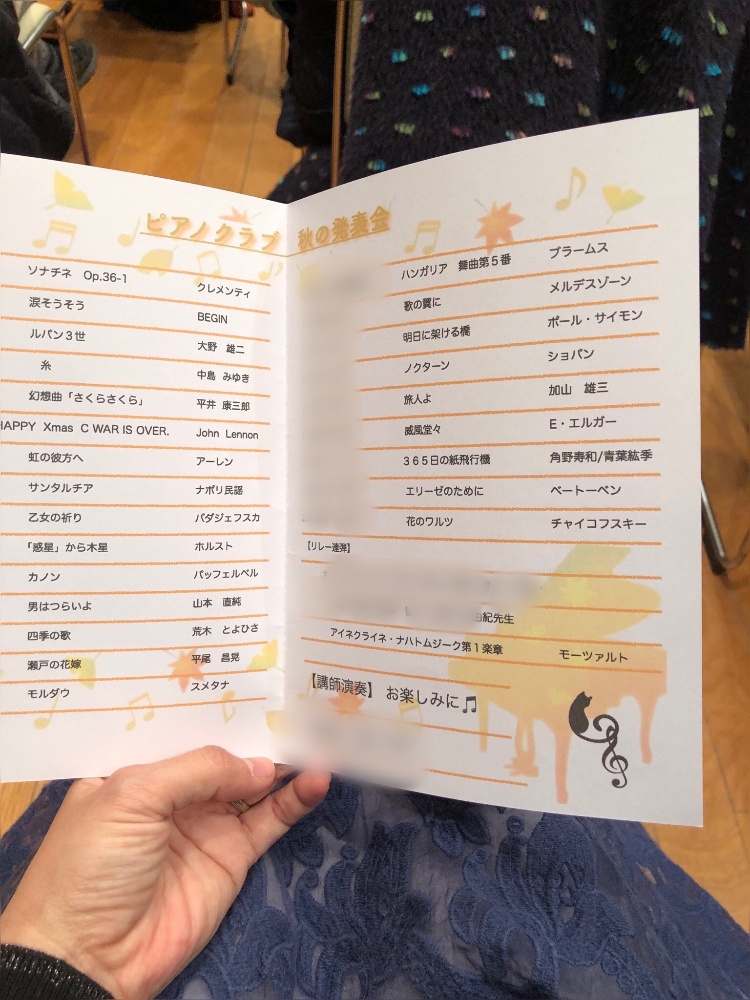 ピアノクラブ 秋の発表会
ソナチネ Op.36-1 クレメンティ
涙そうそう BEGIN
ルパン3世 大野 雄二
糸 中島 みゆき
幻想曲「さくらさくら」 平井 康三郎
HAPPY Xmas C WAR IS OVER. John Lennon
虹の彼方へ アーレン
サンタルチア ナポリ民謡
乙女の祈り バダジェフスカ
「惑星」から木星 ホルスト
カノン パッフェルベル
男はつらいよ 山本 直純
四季の歌 荒木 とよひさ
瀬戸の花嫁 平尾 昌晃
モルダウ スメタナ
ハンガリア 舞曲第5番 ブラームス
歌の翼に メルデスゾーン
明日に架ける橋 ポール・サイモン
ノクターン ショパン
旅人よ 加山 雄三
威風堂々 E・エルガー
365日の紙飛行機 角野寿和/青葉紘季
エリーゼのために ベートーベン
花のワルツ チャイコフスキー
【リレー連弾】
紀先生
アイネクライネ・ナハトムジーク第1楽章 モーツァルト
【講師演奏】 お楽しみに♫